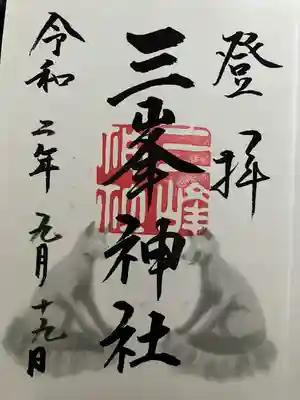 登拝
三峯神社
令和二年九月十九日